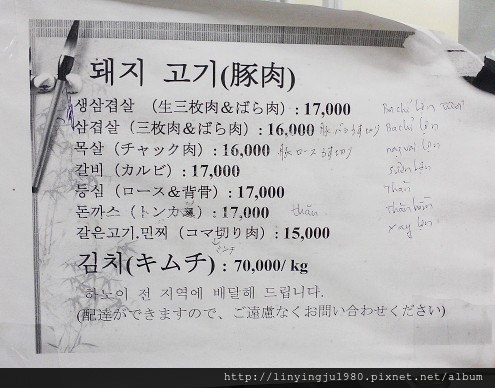 돼지 고기(豚肉)
생삼겹살 (生三枚肉&ばら肉) : 17,000 Ba chỉ lợn tươi
삼겹살 (三枚肉&ばら肉) : 16,000 豚バラうす切り Ba chỉ lợn
목살 (チャック肉) : 16,000 豚ロースうす切り
갈비 (カルビ) : 17,000 sườn lợn
등심 (ロース&背骨) : 17,000 Thăn
돈까스 (トンカ) : 17,000 thăn Thăn
갈은고기.민찌 (コマ切り肉) : 15,000 xay lợn
ミンチ
김치(キムチ) : 70,000/ kg
하노이 전 지역에 배달해 드립니다.
(配達ができますので、ご遠慮なくお問い合わせください)
http://linyingju1980.pixnet.net/album